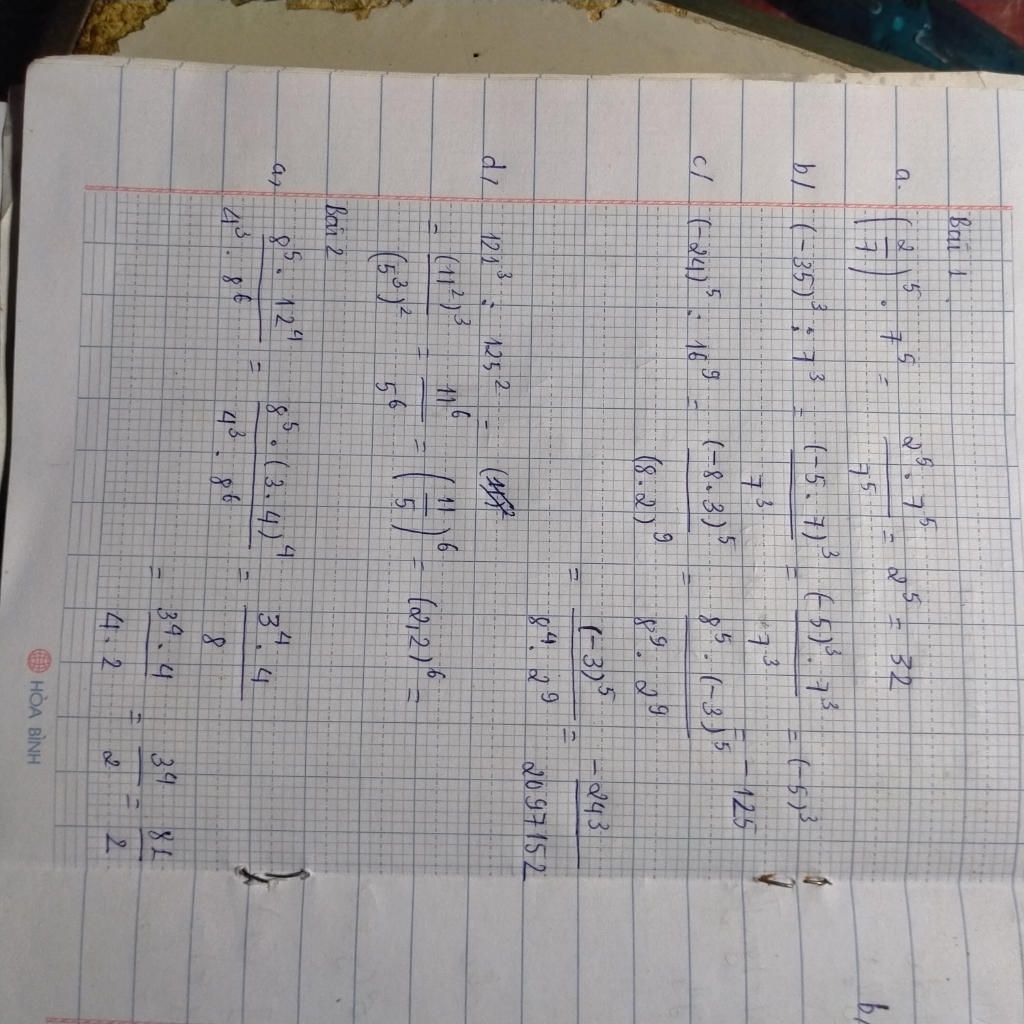 Bài 1
a. (2/7)⁵ · 7⁵ = 2⁵·7⁵/7⁵ = 2⁵ = 32
b/ (-35)³ : 7³ = (-5·7)³/7³ = (-5)³·7³/7³ = (-5)³
= -125
c/ (-24)⁵ : 16⁹ = (-8·3)⁵/(8·2)⁹ = 8⁵·(-3)⁵/8⁹·2⁹
= (-3)⁵/8⁴·2⁹ = -243/2097152
d, 121³ : 125² =
= (11²)³/(5³)² = 11⁶/5⁶ = (11/5)⁶ = (2,2)⁶ =
Bài 2
a, 8⁵·12⁴/4³·8⁶ = 8⁵·(3·4)⁴/4³·8⁶ = 3⁴·4/8
= 3⁴·4/4·2 = 3⁴/2 = 81/2
HÒA BÌNH
b,